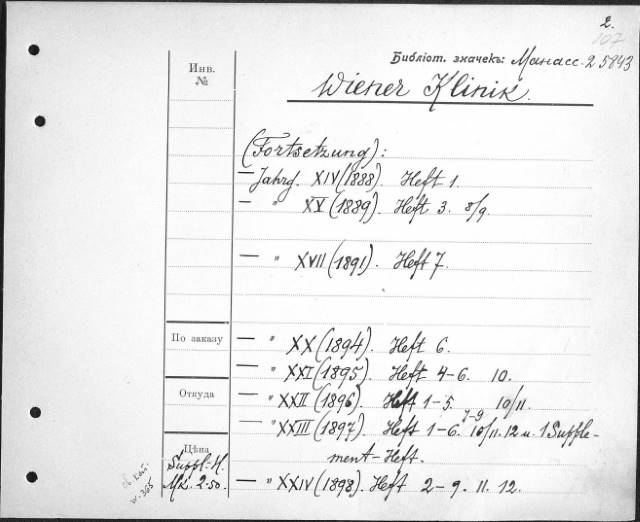 2.
107
Библіот. значекъ: Манасс. 25843
Инв.
№
Wiener Klinik.
(Fortsetzung):
— Jahrg. XIV (1888). Heft 1.
— " XV (1889). Heft 3. 8/9.
— " XVII (1891). Heft 7.
— " XX (1894). Heft 6.
По заказу
— " XXI (1895). Heft 4-6. 10.
Откуда
— " XXII (1896). Heft 1-5. 10/11.
7-9
— " XXIII (1897). Heft 1-6. 10/11. 12 u. 1 Supple-
ment-Heft.
Цѣна
Suppl.-H.
Mk. 2.50.
— " XXIV (1898). Heft 2-9. 11. 12.